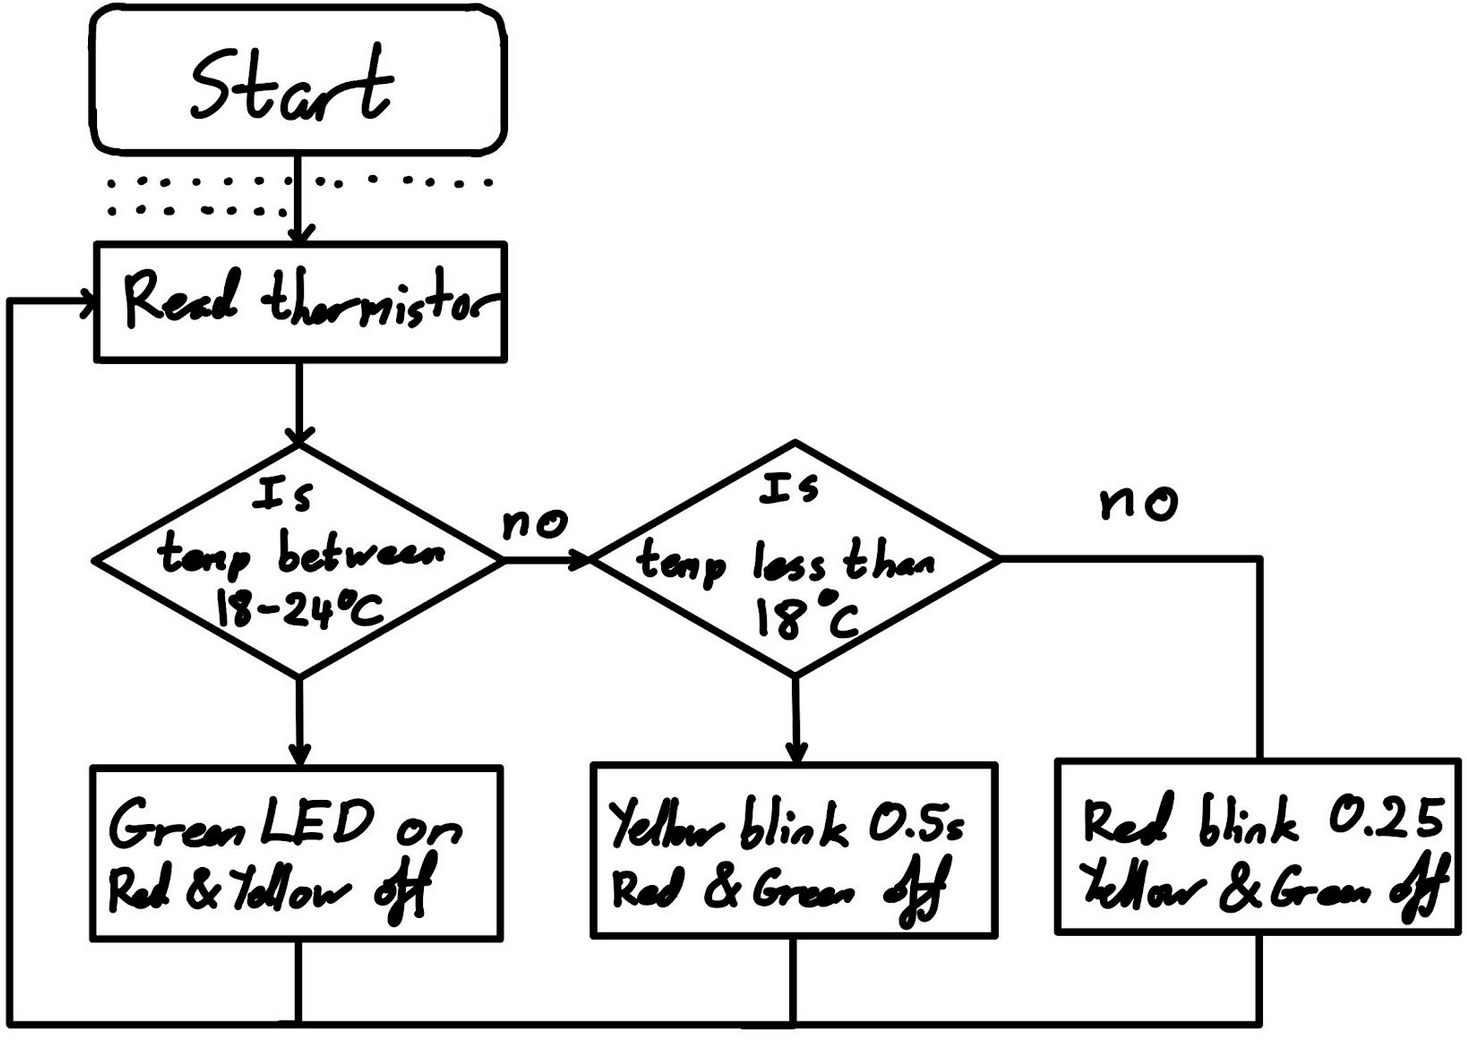 Start
Read thermistor
Is
temp between
18-24°C
no
Is
temp less than
18°C
no
Green LED on
Red & Yellow off
Yellow blink 0.5s
Red & Green off
Red blink 0.25
Yellow & Green off